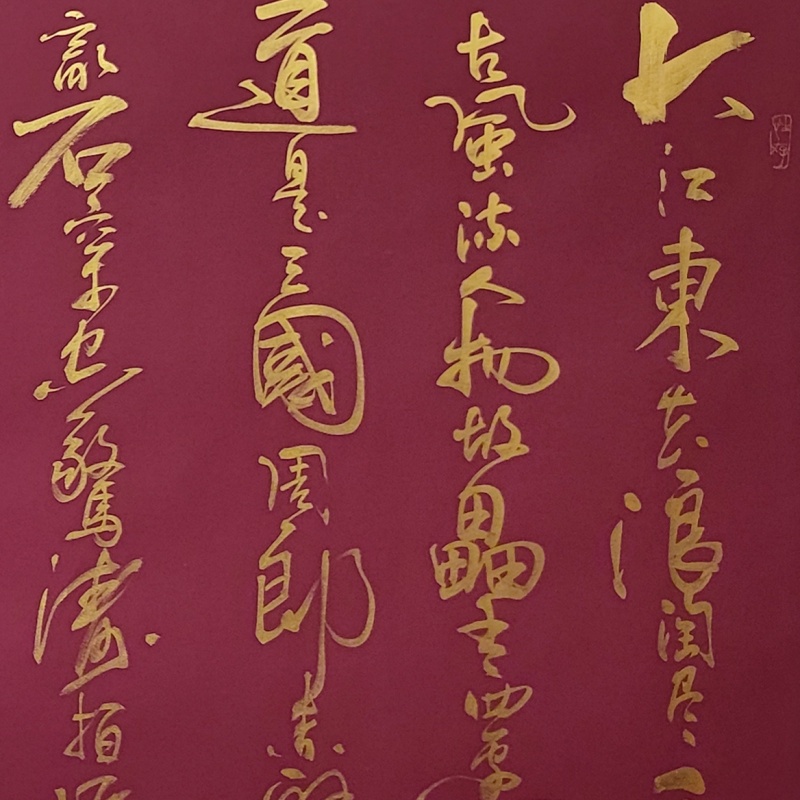 大江東去浪淘尽
古風流人物故壘西邊
道是三國周郎赤
亂石穿空驚濤拍